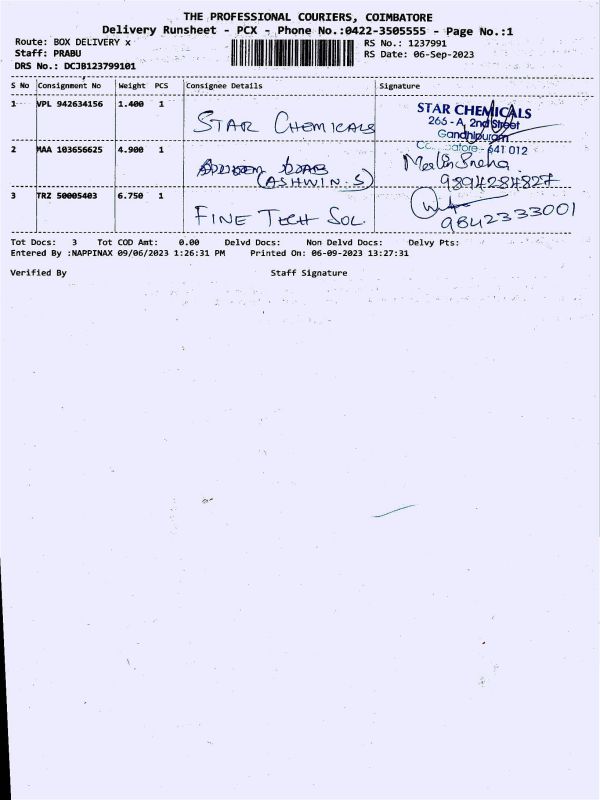 THE PROFESSIONAL COURIERS, COIMBATORE
Delivery Runsheet - PCX - Phone No.:0422-3505555 - Page No.:1
Route: BOX DELIVERY x
RS No.: 1237991
Staff: PRABU
RS Date: 06-Sep-2023
DRS No.: DCJB123799101
S No Consignment No Weight PCS Consignee Details Signature
1 VPL 942634156 1.400 1 STAR CHEMICALS
STAR CHEMICALS
265 - A, 2nd Street
Gandhipuram
641 012
2 MAA 103656625 4.900 1
(ASHWIN.S)
Sneha
9894284827
3 TRZ 50005403 6.750 1 FINE TECH SOL.
9842333001
Tot Docs: 3 Tot COD Amt: 0.00 Delvd Docs: Non Delvd Docs: Delvy Pts:
Entered By :NAPPINAX 09/06/2023 1:26:31 PM Printed On: 06-09-2023 13:27:31
Verified By Staff Signature